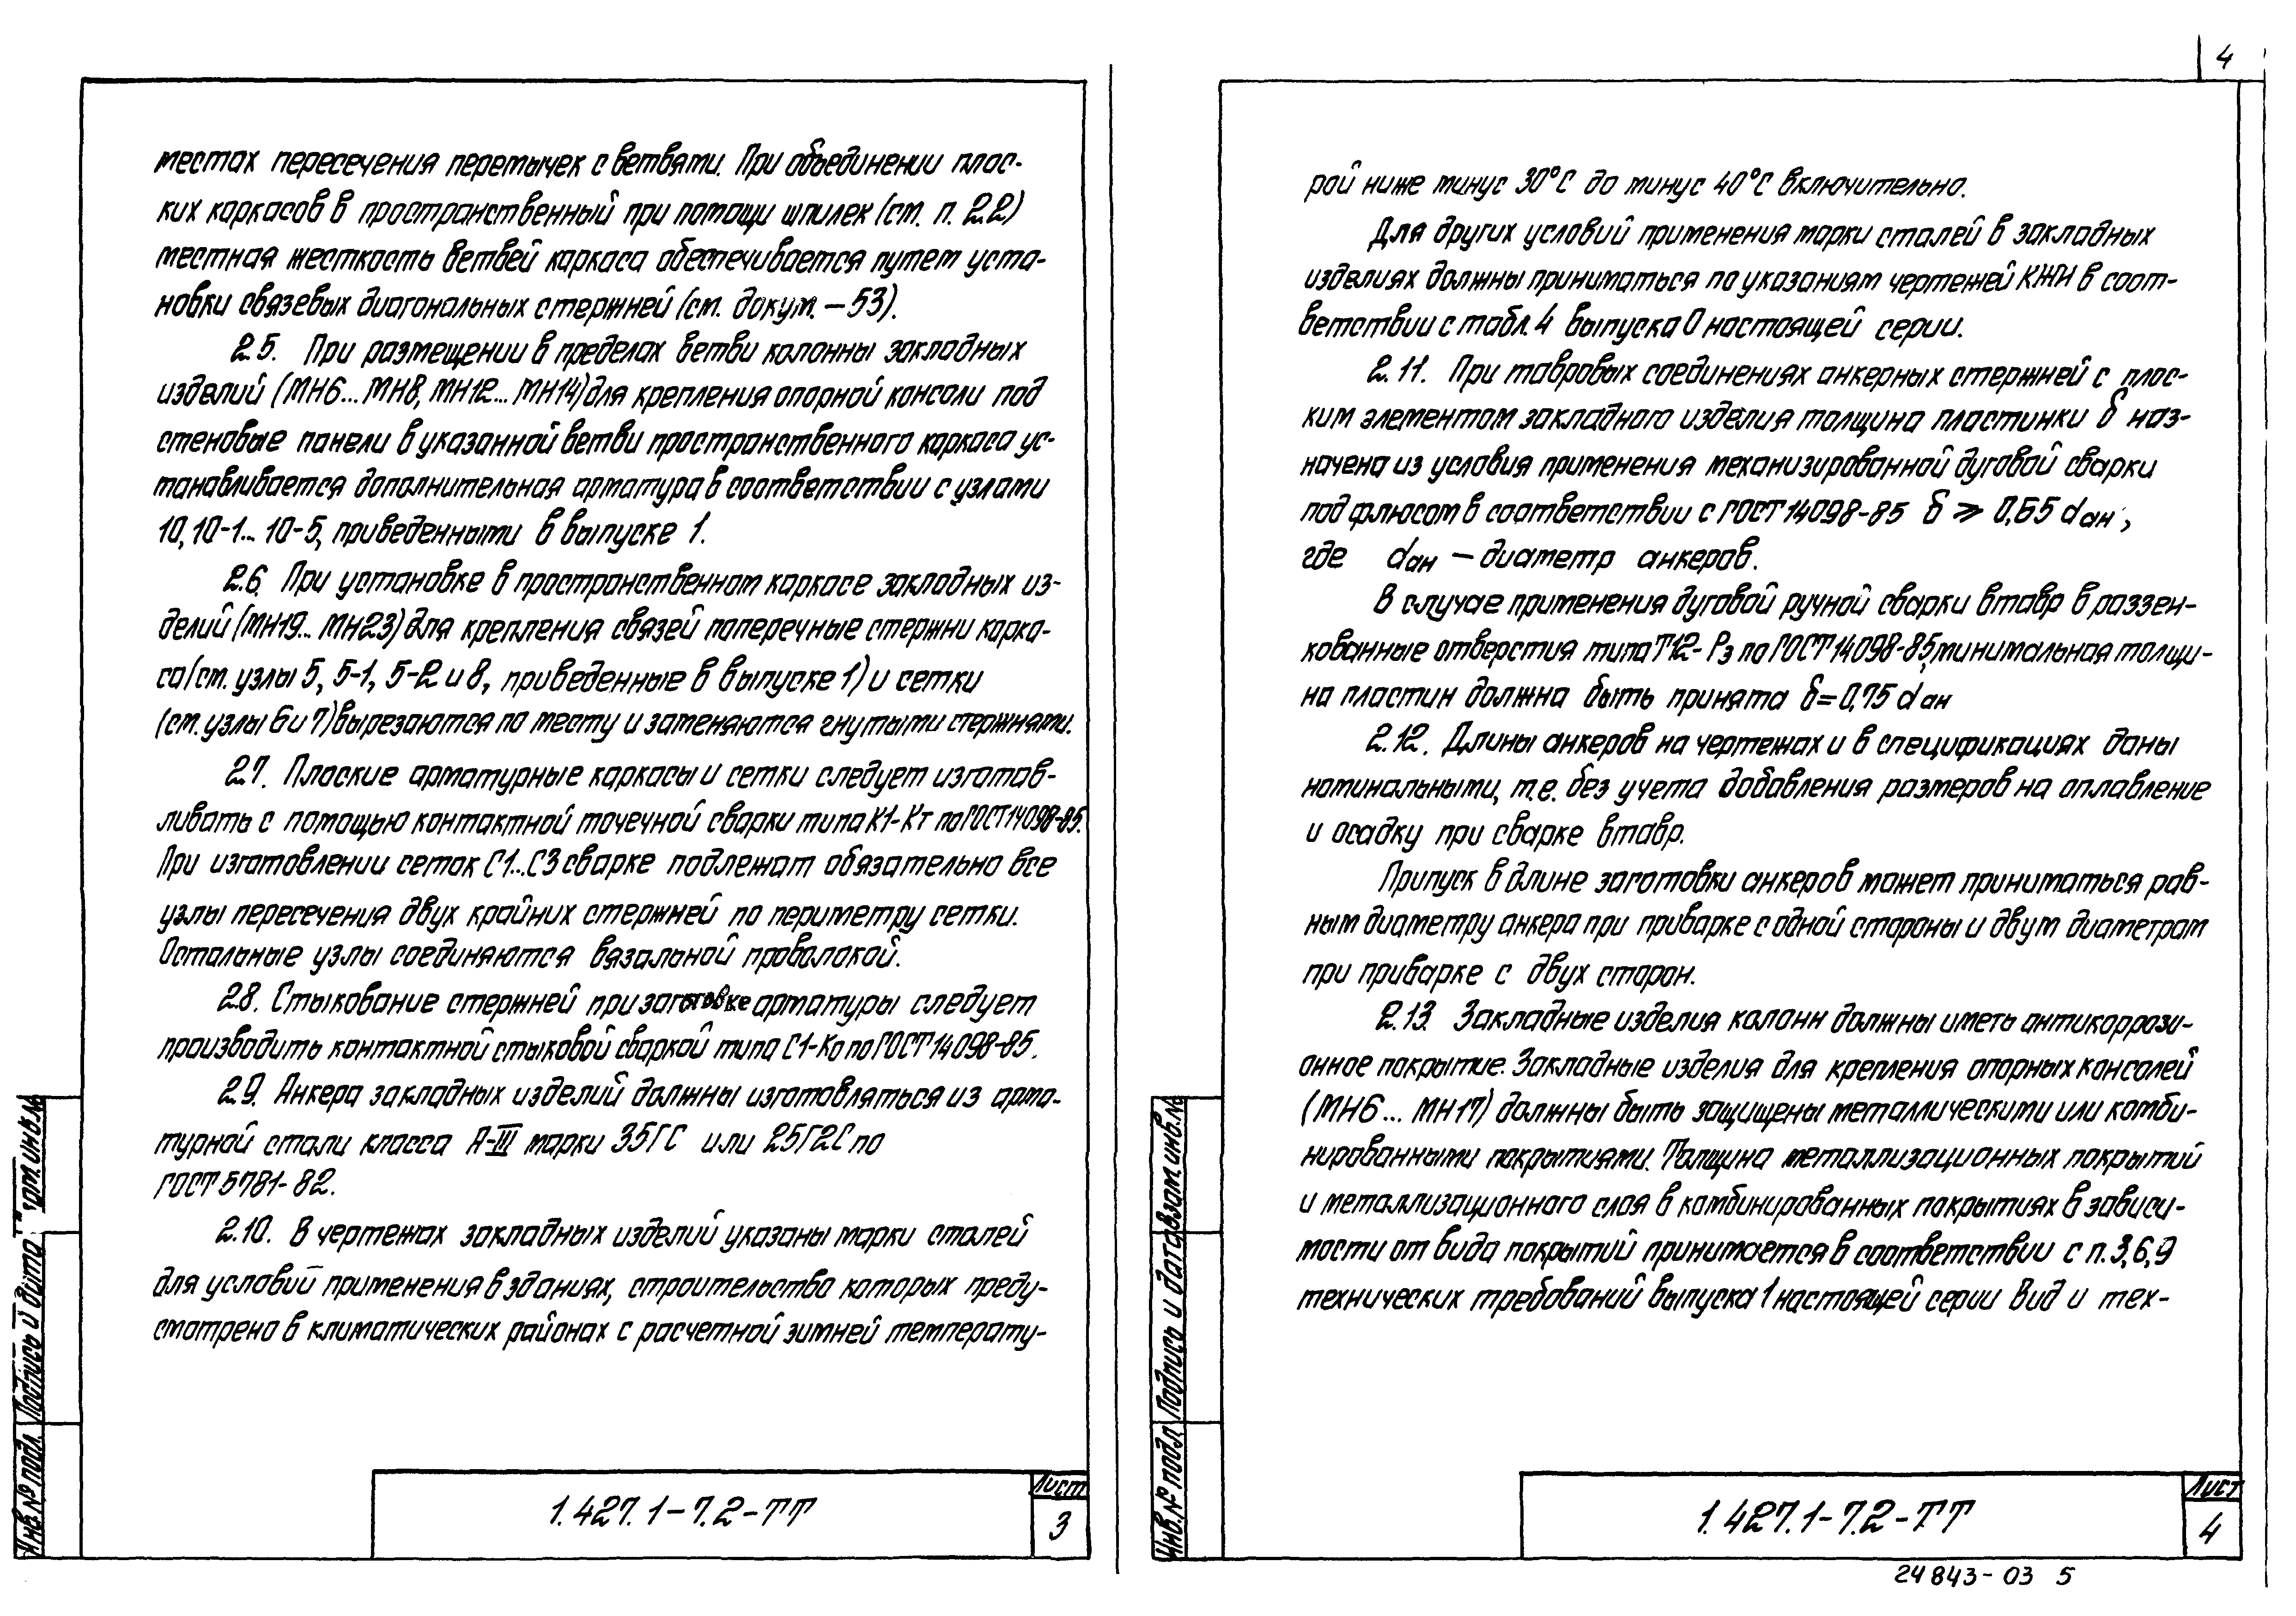 местах пересечения перемычек с ветвями. При объединении плос-
ких каркасов в пространственный при помощи шпилек (см. п. 2.2)
местная жесткость ветвей каркаса обеспечивается путем уста-
новки связевых диагональных стержней (см. докум. – 53).
2.5. При размещении в пределах ветви колонны закладных
изделий (МН6... МН8, МН12... МН14) для крепления опорной консоли под
стеновые панели в указанной ветви пространственного каркаса ус-
танавливается дополнительная арматура в соответствии с узлами
10, 10-1... 10-5, приведенными в выпуске 1.
2.6. При установке в пространственном каркасе закладных из-
делий (МН19... МН23) для крепления связей поперечные стержни карка-
са (см. узлы 5, 5-1, 5-2 и 8, приведенные в выпуске 1) и сетки
(см. узлы 6 и 7) вырезаются по месту и заменяются гнутыми стержнями.
2.7. Плоские арматурные каркасы и сетки следует изготав-
ливать с помощью контактной точечной сварки типа К1-Кт по ГОСТ 14098-85.
При изготовлении сеток С1...С3 сварке подлежат обязательно все
узлы пересечения двух крайних стержней по периметру сетки.
Остальные узлы соединяются вязальной проволокой.
2.8. Стыкование стержней при заготовке арматуры следует
производить контактной стыковой сваркой типа С1-Ко по ГОСТ 14098-85.
2.9. Анкера закладных изделий должны изготовляться из арма-
турной стали класса А-III марки 35ГС или 25Г2С по
ГОСТ 5781-82.
2.10. В чертежах закладных изделий указаны марки сталей
для условий применения в зданиях, строительство которых преду-
смотрено в климатических районах с расчетной зимней температу-
1.427.1-7.2-ТТ
Лист
3
Инв. № подл.
Подпись и дата
Взам. инв. №
4
рой ниже минус 30°С до минус 40°С включительно.
Для других условий применения марки сталей в закладных
изделиях должны приниматься по указаниям чертежей КЖИ в соот-
ветствии с табл. 4 выпуска 0 настоящей серии.
2.11. При тавровых соединениях анкерных стержней с плос-
ким элементом закладного изделия толщина пластинки δ наз-
начена из условия применения механизированной дуговой сварки
под флюсом в соответствии с ГОСТ 14098-85 δ ⩾ 0,65 dан,
где dан – диаметр анкеров.
В случае применения дуговой ручной сварки втавр в раззен-
кованные отверстия типа Т12-Рз по ГОСТ 14098-85, минимальная толщи-
на пластин должна быть принята δ = 0,75 dан
2.12. Длины анкеров на чертежах и в спецификациях даны
номинальными, т.е. без учета добавления размеров на оплавление
и осадку при сварке втавр.
Припуск в длине заготовки анкеров может приниматься рав-
ным диаметру анкера при приварке с одной стороны и двум диаметрам
при приварке с двух сторон.
2.13. Закладные изделия колонн должны иметь антикоррози-
онное покрытие. Закладные изделия для крепления опорных консолей
(МН6... МН17) должны быть защищены металлическими или комби-
нированными покрытиями. Толщина металлизационных покрытий
и металлизационного слоя в комбинированных покрытиях в зависи-
мости от вида покрытий принимается в соответствии с п. 3, 6, 9
технических требований выпуска 1 настоящей серии Вид и тех-
1.427.1-7.2-ТТ
Лист
4
Инв. № подл.
Подпись и дата
Взам. инв. №
24843-03 5